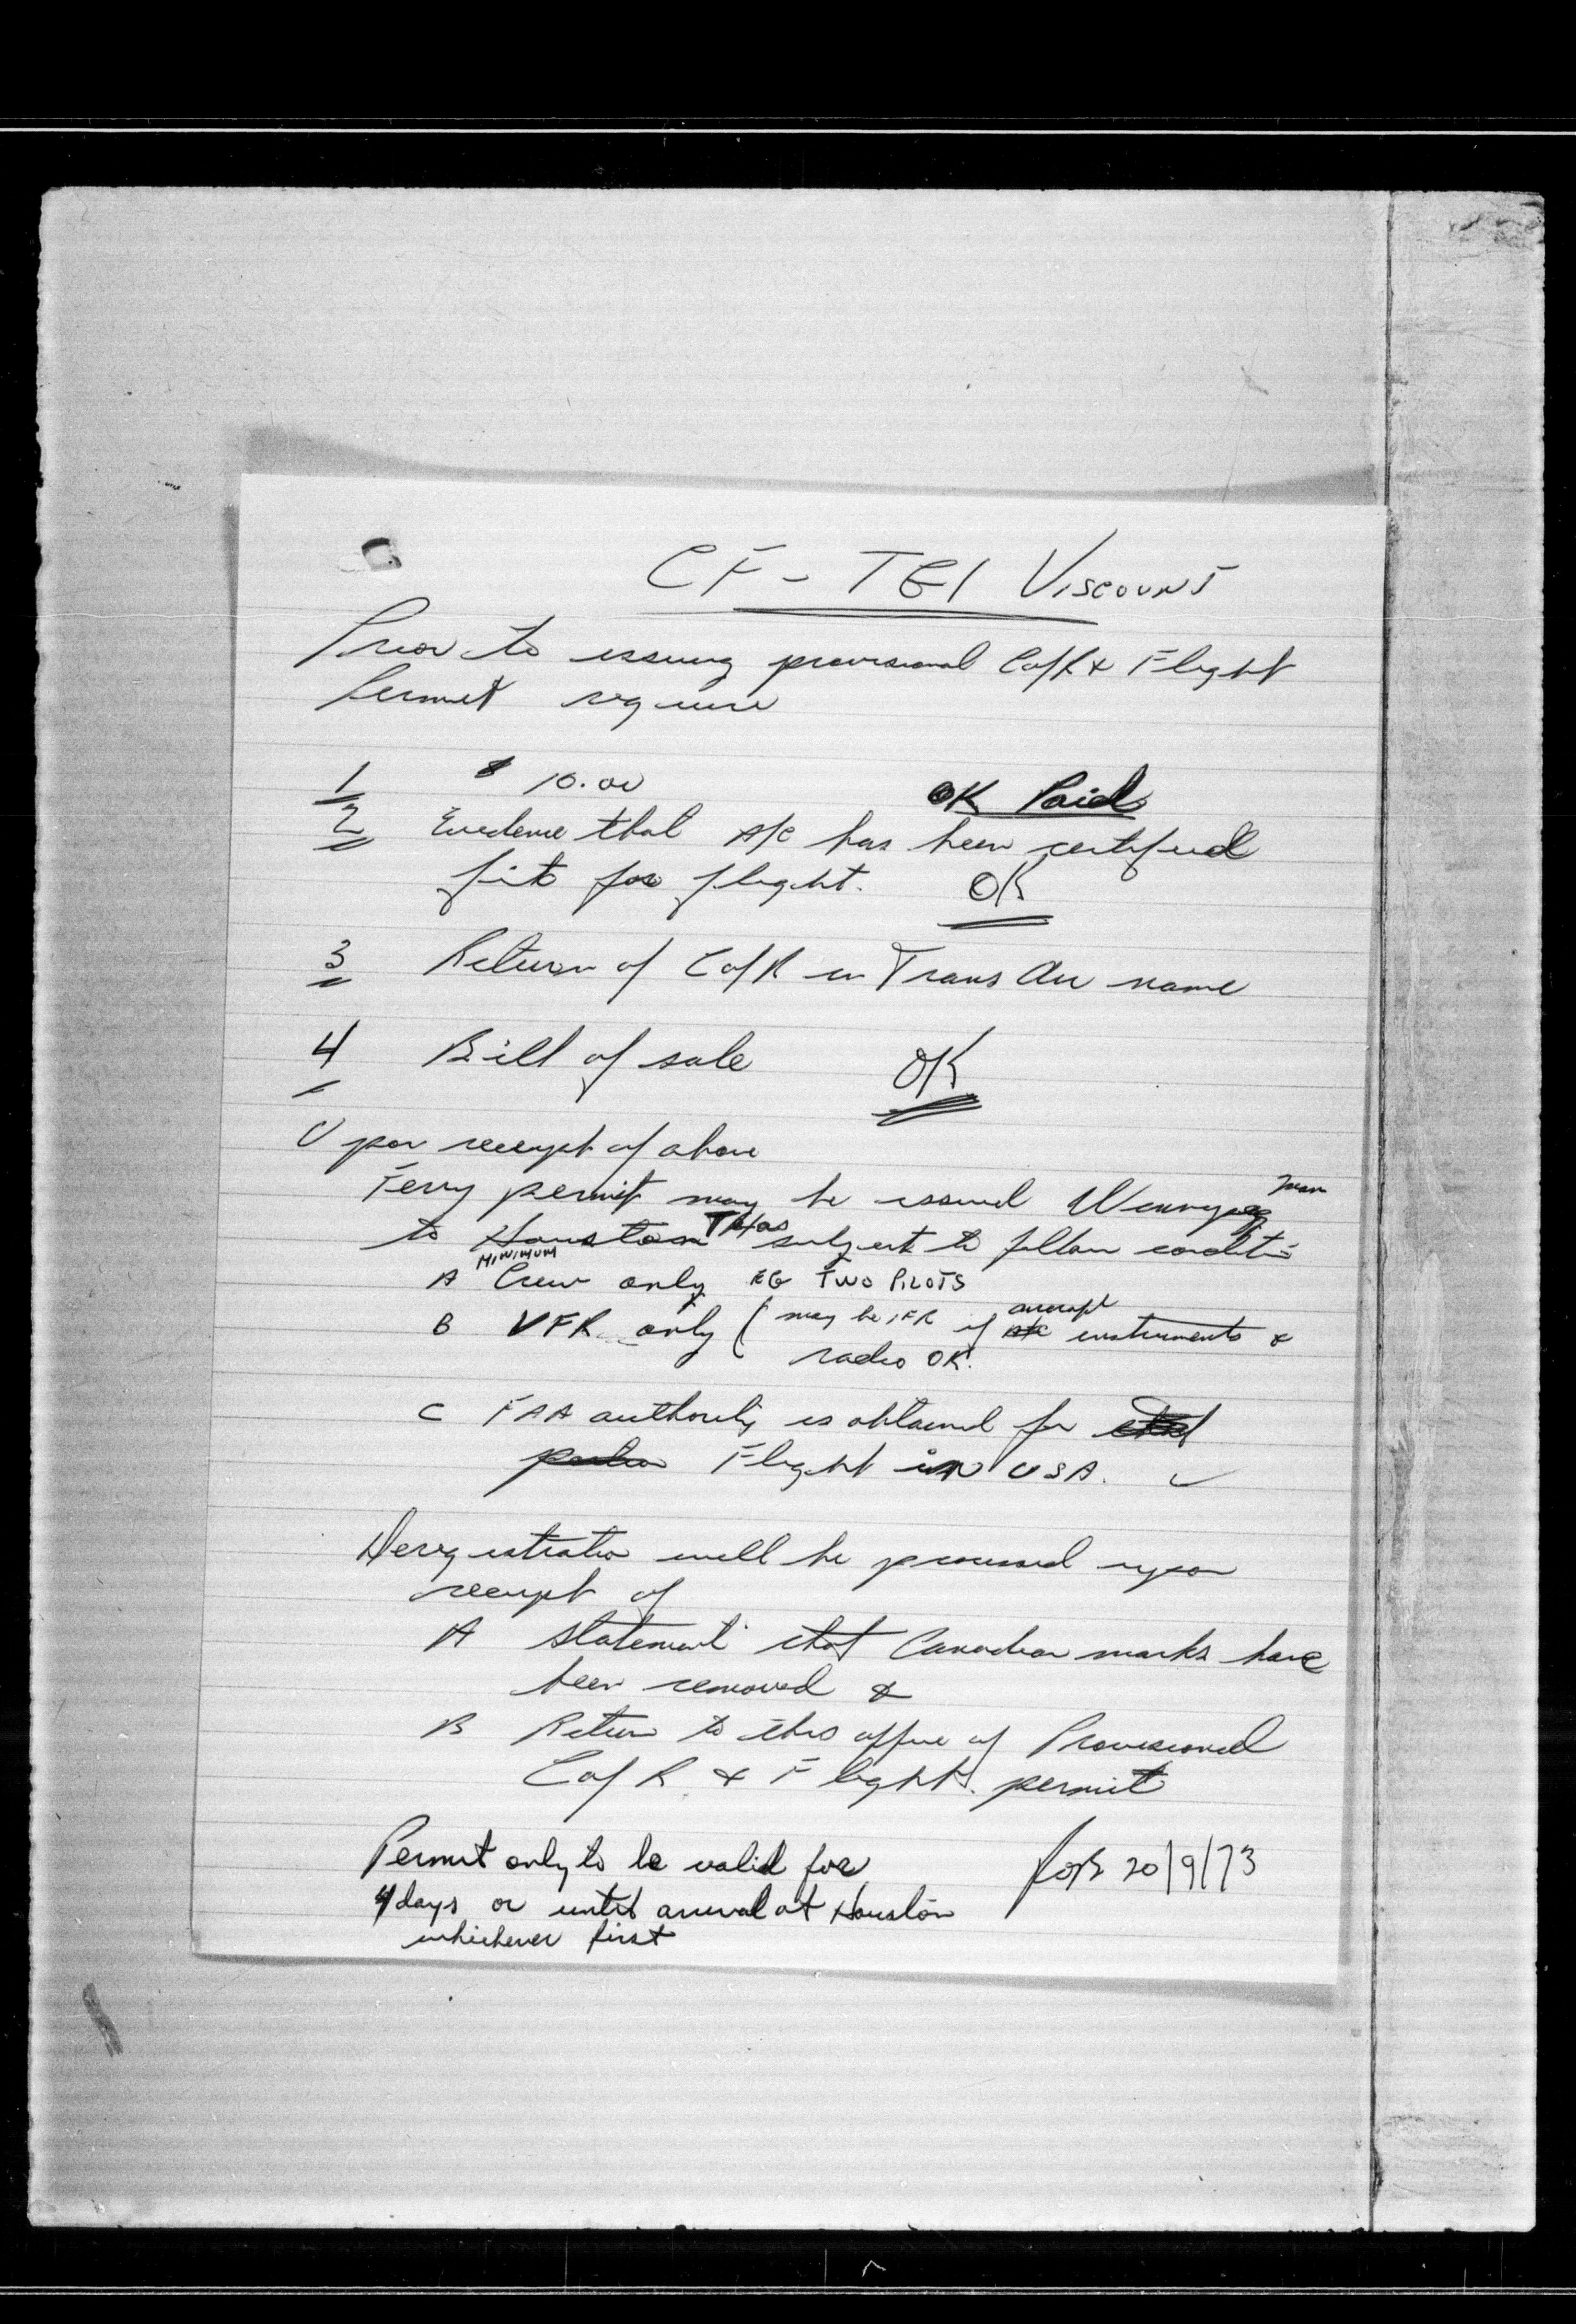 CF - TGI VISCOUNT
Prior to issuing provisional C of R & Flight
Permit require
1 $ 10.00 OK Paid
2 Evidence that A/C has been certified
fit for flight. OK
3 Return of C of R in Trans Air name
4 Bill of sale OK
Upon receipt of above
Ferry permit may be issued Winnipeg Man
to Houston Texas subject to follow conditions
A MINIMUM Crew only EG TWO PILOTS
B VFR only (may be IFR if aircraft instruments &
radio OK.
C FAA authority is obtained for
Flight in USA. ✓
Deregistration will be processed upon
receipt of
A statement that Canadian marks have
been removed &
B Return to this office of Provisional
C of R & Flight permit
Permit only to be valid for
4 days or until arrival at Houston
whichever first
20/9/73